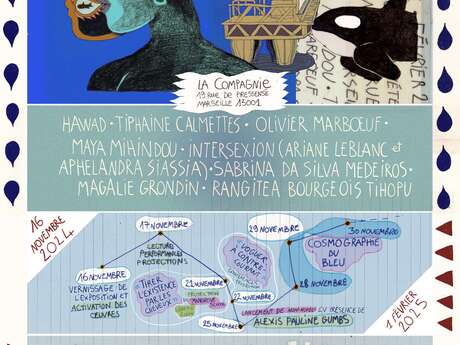 FÉVRIER 2
LA COMPAGNIE
19 RUE DE PRESSENSÉ
MARSEILLE 13001
HAWAD • TIPHAINE CALMETTES • OLIVIER MARBOEUF •
MAYA MIHINDOU • INTERSEXION (ARIANE LEBLANC et
APHELANDRA SIASSIA) • SABRINA DA SILVA MEDEIROS •
MAGALIE GRONDIN • RANGITEA BOURGEOIS TIHOPU
16
NOVEMBRE
2024
17 NOVEMBRE
LECTURE
PERFORMANCES
PROJECTIONS
16 NOVEMBRE
VERNISSAGE DE
L'EXPOSITION ET
ACTIVATION DES
ŒUVRES
"TIRER
L'EXISTENCE
PAR LES
CHEVEUX"
21 NOVEMBRE
PROJECTION
MANGROVE
SCHOOL
25 NOVEMBRE
"VOGUER
À CONTRE-
COURANT"
22 NOVEMBRE
LANCEMENT DE NON-NOYÉES EN PRÉSENCE DE
ALEXIS PAULINE GUMBS
29 NOVEMBRE
28 NOVEMBRE
30 NOVEMBRE
COSMOGRAPHIE
DU
BLEU
1 FÉVRIER
2025